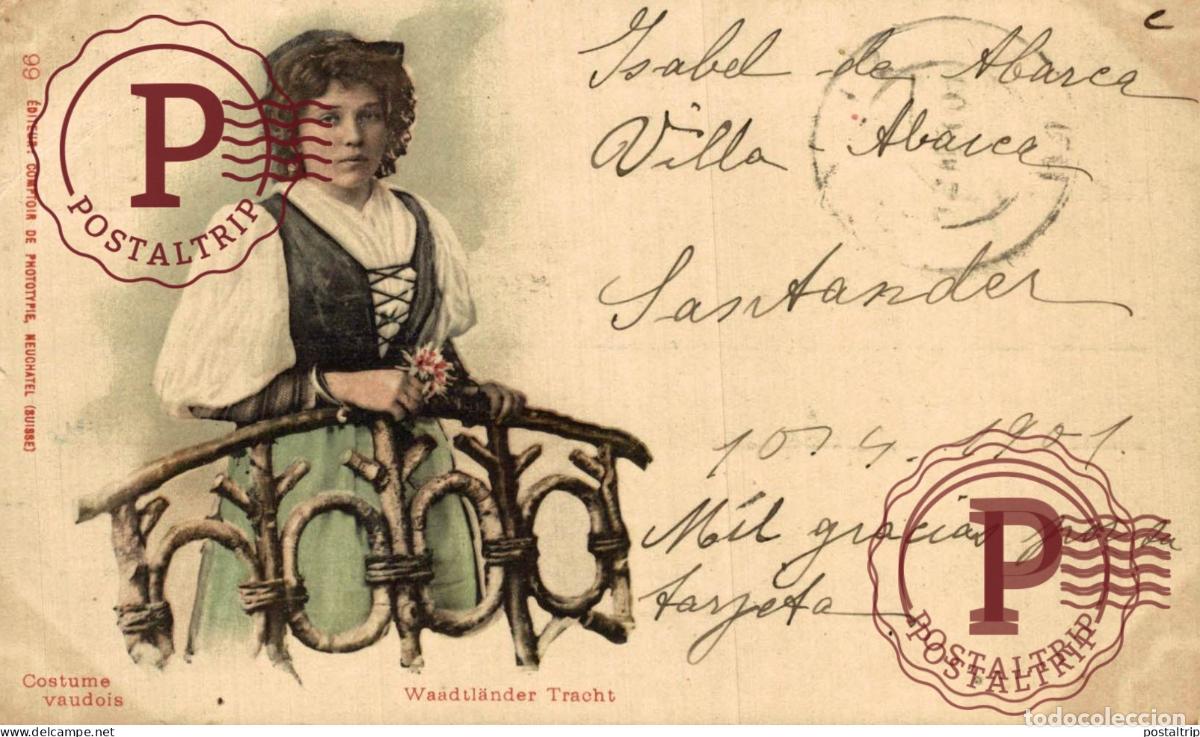 99 ÉDITEUR: COMPTOIR DE PHOTOTYPIE, NEUCHATEL (SUISSE)
P
POSTALTRIP
Isabel de Abarca
Villa Abarca
Santander
10 4. 1901
Mil gracias por su
tarjeta
P
POSTALTRIP
POSTALTRIP
Costume
vaudois
Waadtländer Tracht
todocoleccion
www.todocoleccion.net
postaltrip